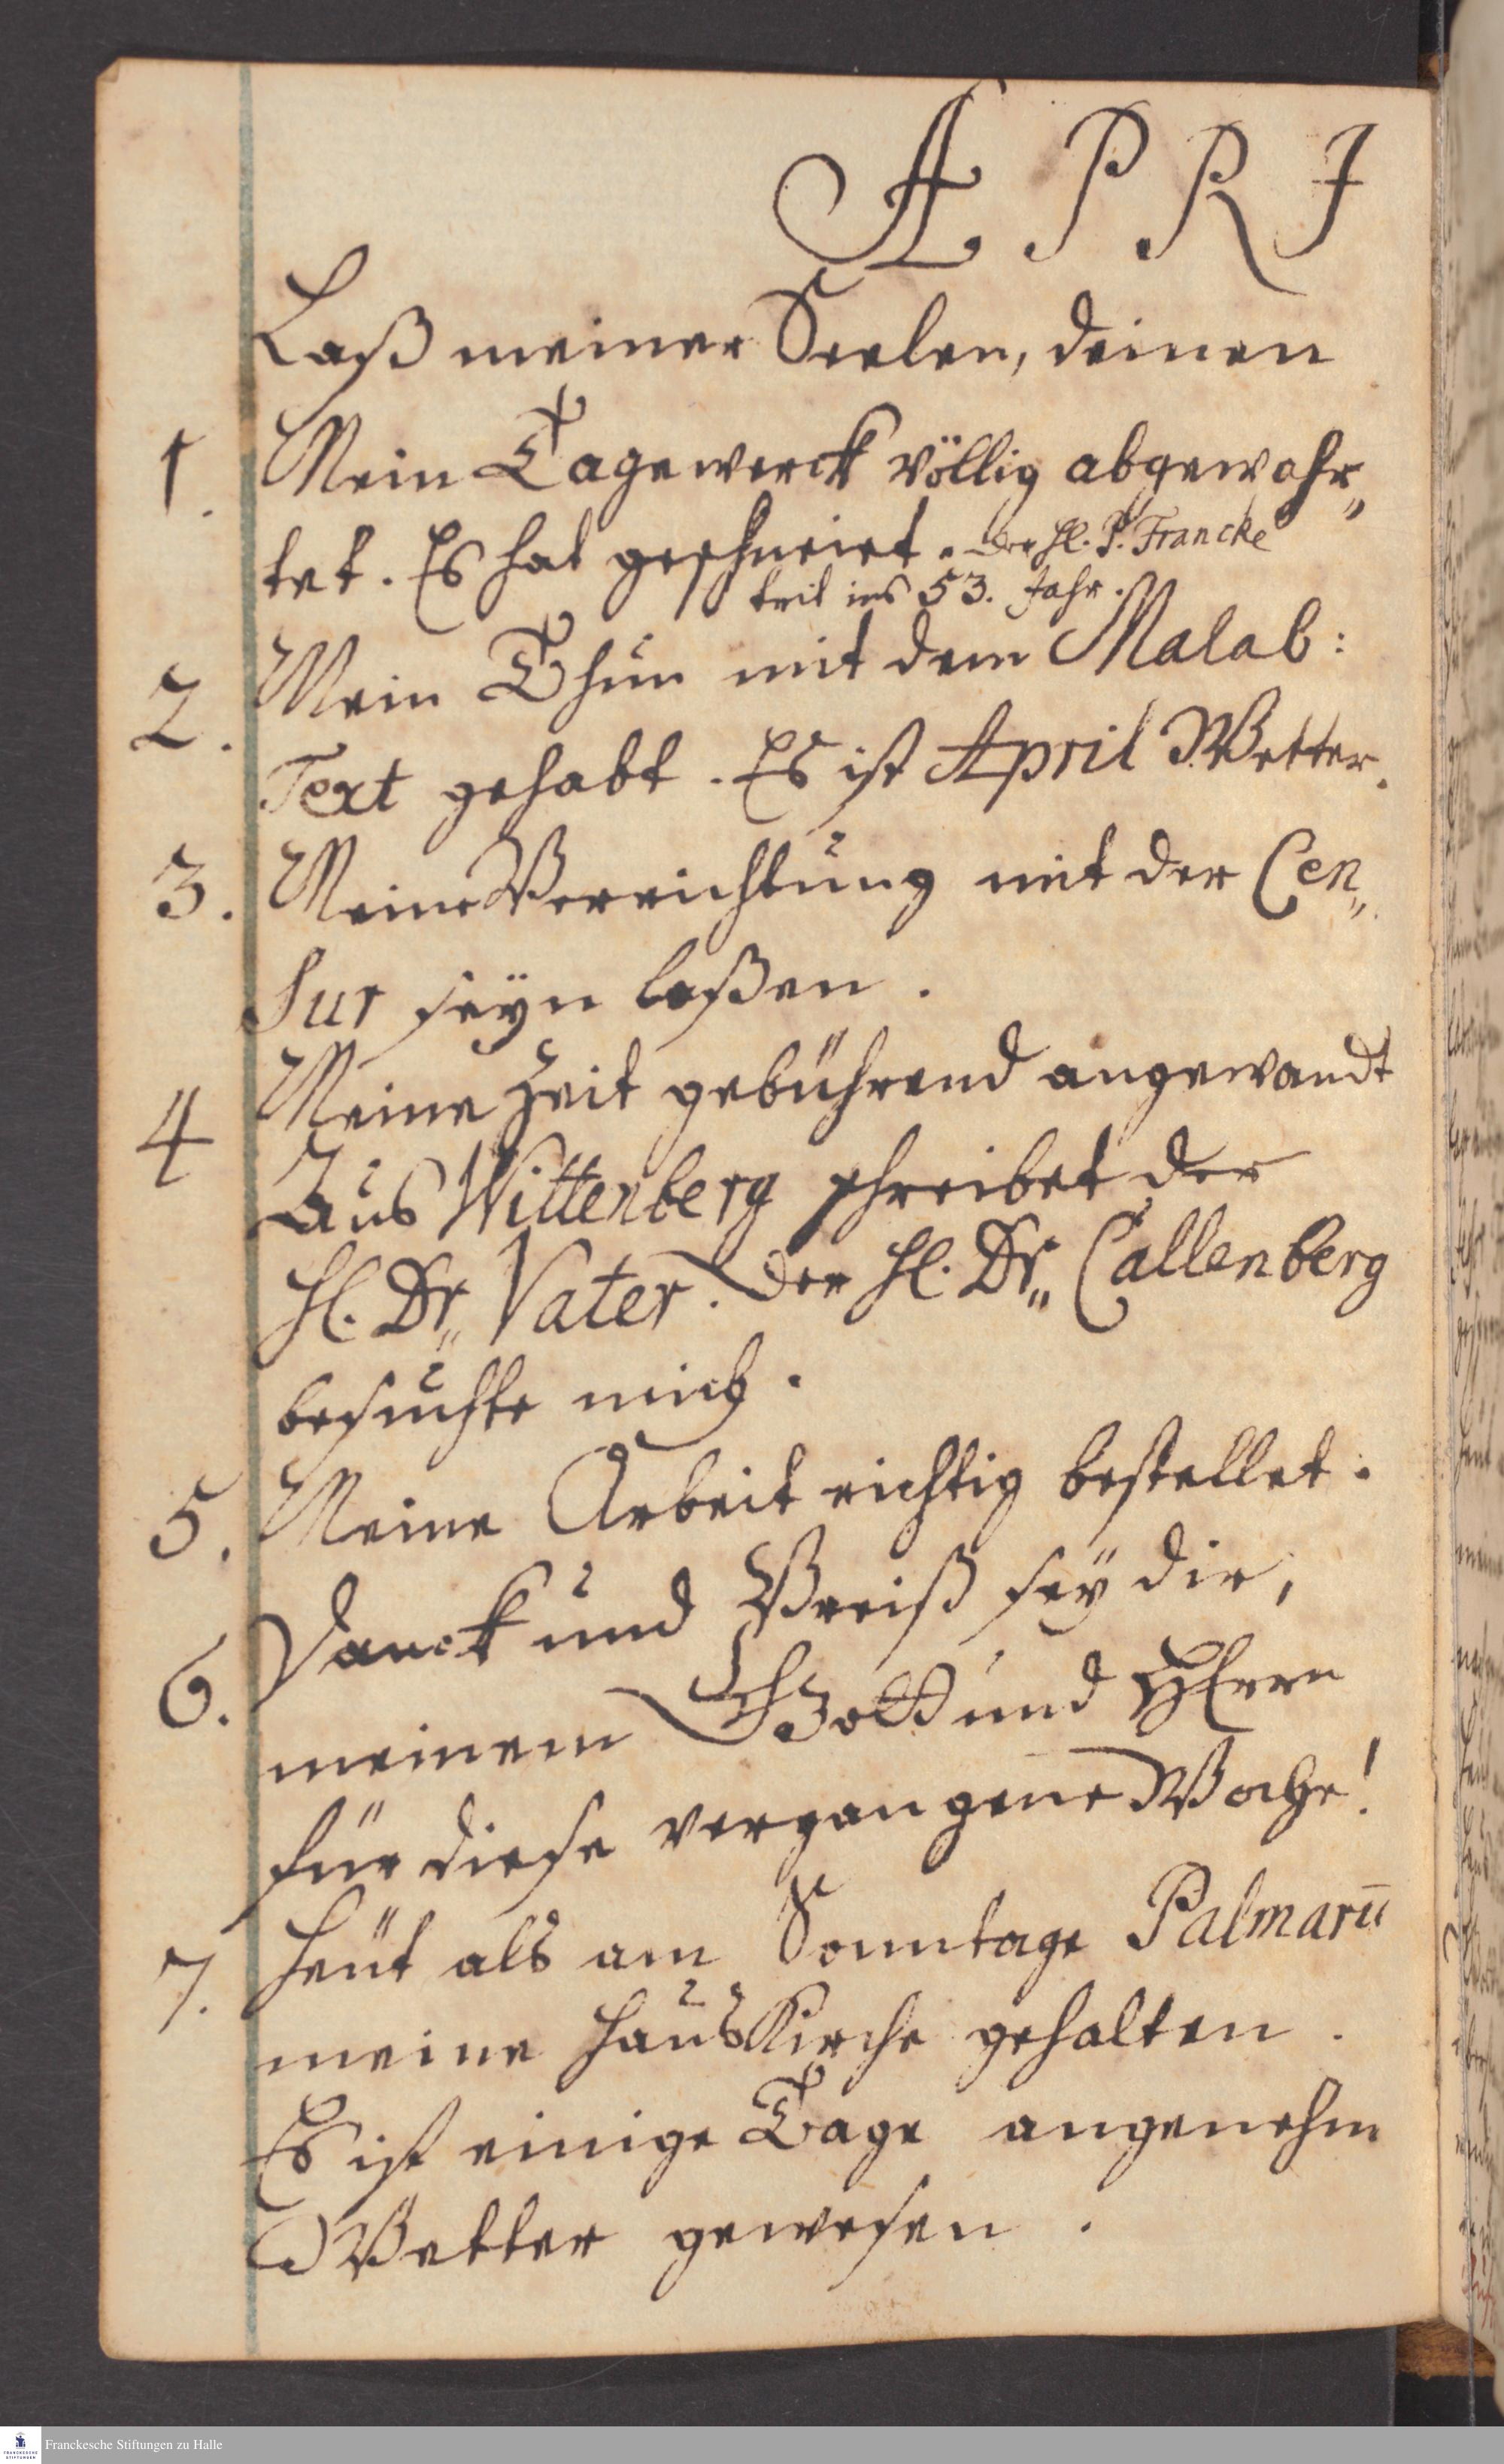 A P R I
Laß meiner Seelen, deinen
1. Mein Tagewerck völlig abgewahr„
tet. Es hat geschneiet. Der H. P. Francke
trit ins 53. Jahr.
2. Mein Thun mit dem Malab:
Text gehabt. Es ist April Wetter.
3. Meine Verrichtung mit der Cen„
sur seyn laßen.
4 Meine Zeit gebührend angewandt
Aus Wittenberg schreibet der
H. Dr„ Vater. Der H. Dr„ Callenberg
besuchte mich.
5. Meine Arbeit richtig bestellet.
6. Danck und Preiß sey dir,
meinem Gott und HErrn
für diese vergangene Woche!
7. Heut als am Sonntage Palmarū
meine HausKirche gehalten.
Es ist einige Tage angenehm
Wetter gewesen.
Franckesche Stiftungen zu Halle